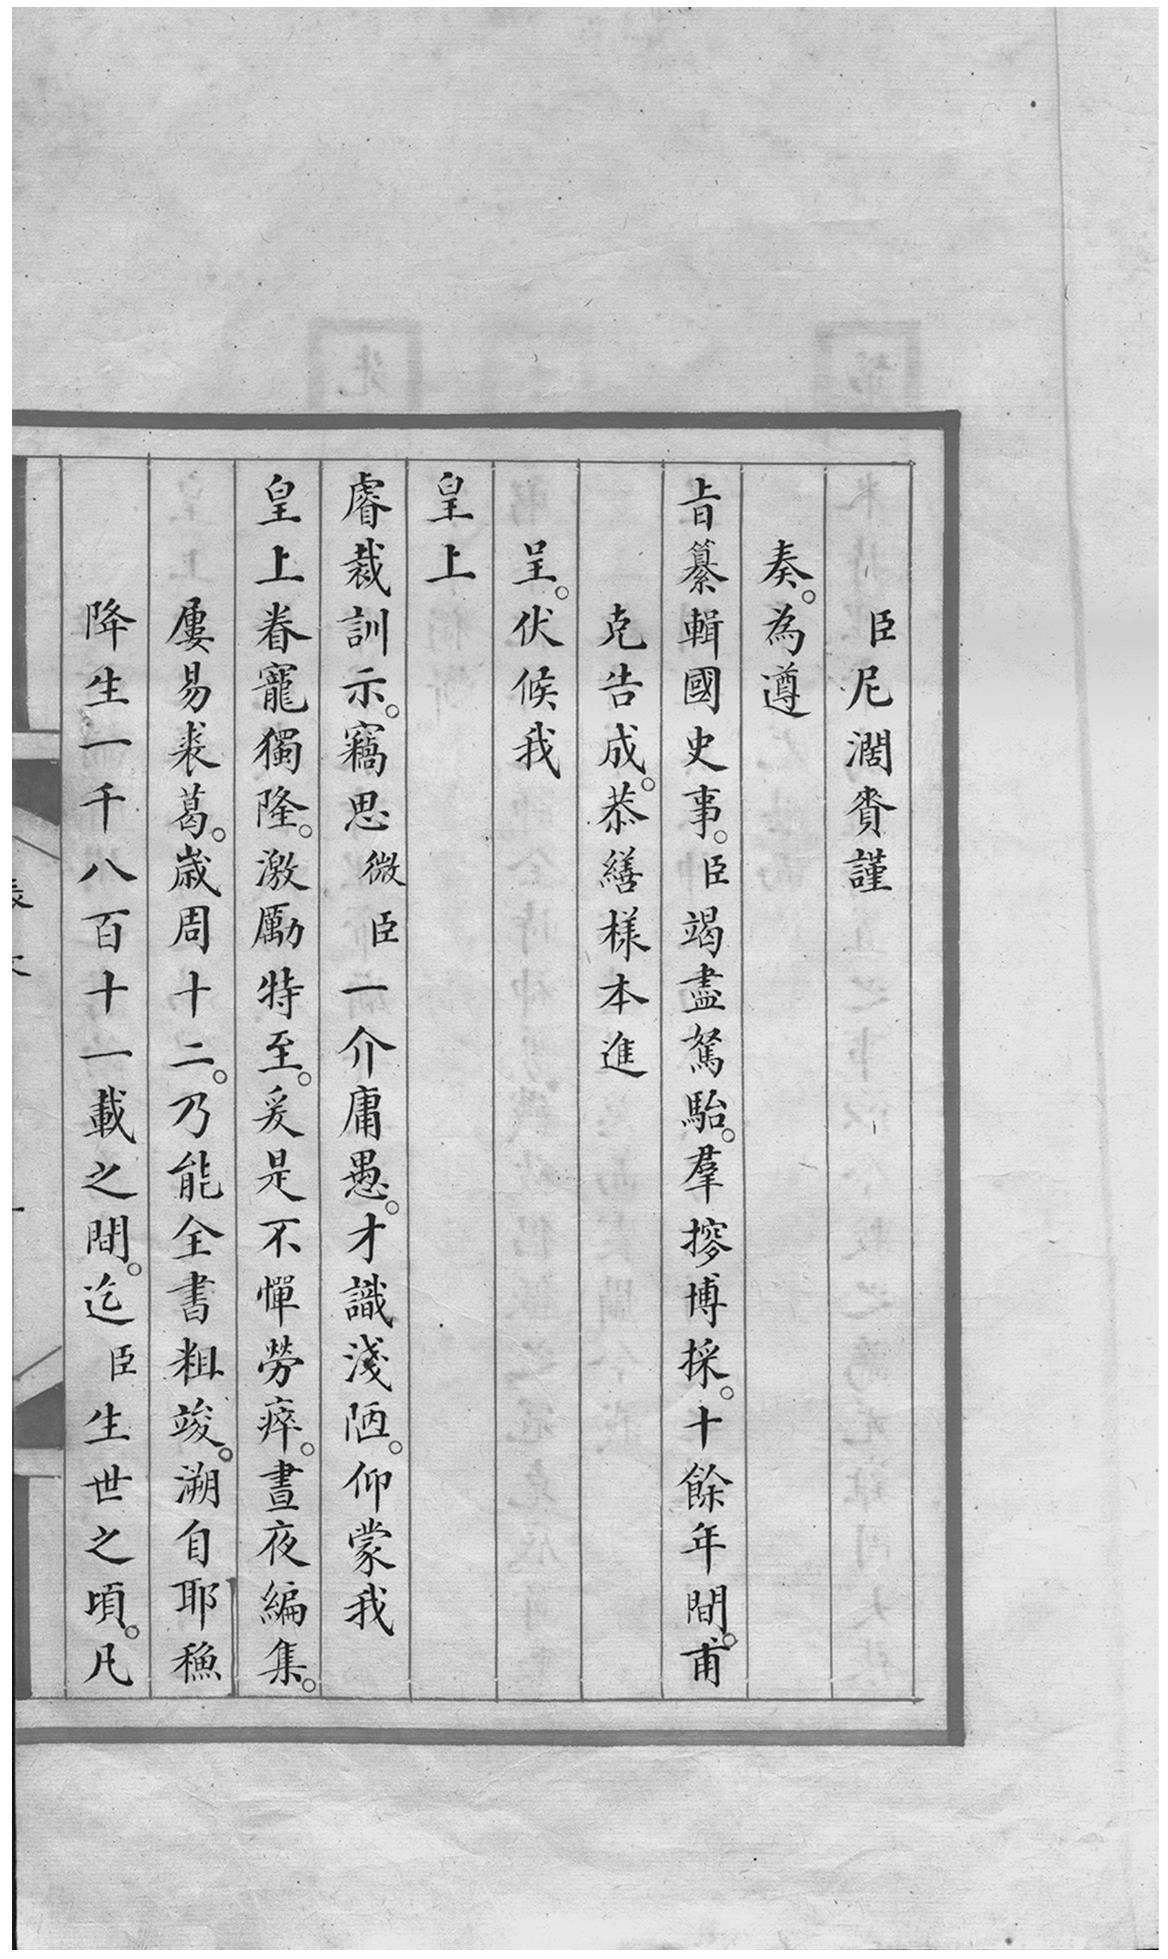 臣尼濶賫謹
奏。為遵
旨纂輯國史事。臣竭盡駑駘。羣搜博採。十餘年間。甫
克告成。恭繕樣本進
呈。伏候我
皇上
睿裁訓示。竊思微臣一介庸愚。才識淺陋。仰蒙我
皇上眷寵獨隆。激勵特至。爰是不憚勞瘁。晝夜編集。
屢易裘葛。歲周十二。乃能全書粗竣。溯自耶穌
降生一千八百十一載之間。迄臣生世之頃。凡
表文
一